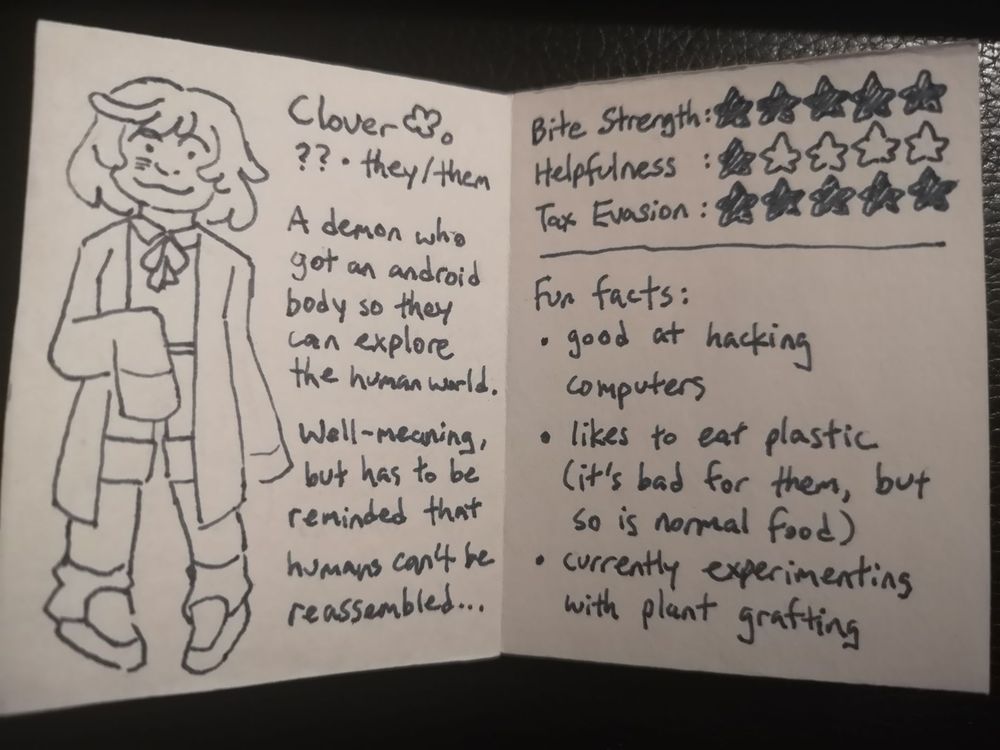 Clover
?? • they/them
A demon who
got an android
body so they
can explore
the human world.
Well-meaning,
but has to be
reminded that
humans can't be
reassembled...
Bite Strength: ★★★★★
Helpfulness : ★☆☆☆☆
Tax Evasion : ★★★★★
Fun facts:
• good at hacking
computers
• likes to eat plastic
(it's bad for them, but
so is normal food)
• currently experimenting
with plant grafting